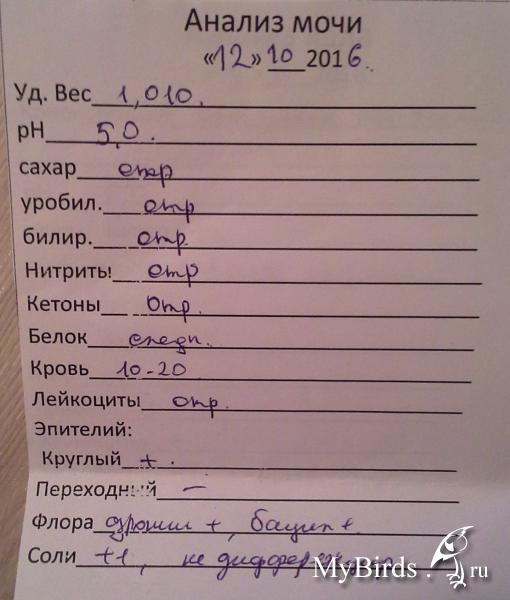 Анализ мочи
«12» 10 2016.
Уд. Вес 1,010.
pH 5,0.
сахар отр
уробил. отр
билир. отр
Нитриты отр
Кетоны Отр.
Белок следы.
Кровь 10-20
Лейкоциты отр.
Эпителий:
Круглый + .
Переходный —
Флора дрожжи +, бацил +
Соли ++, не диффер
MyBirds.ru